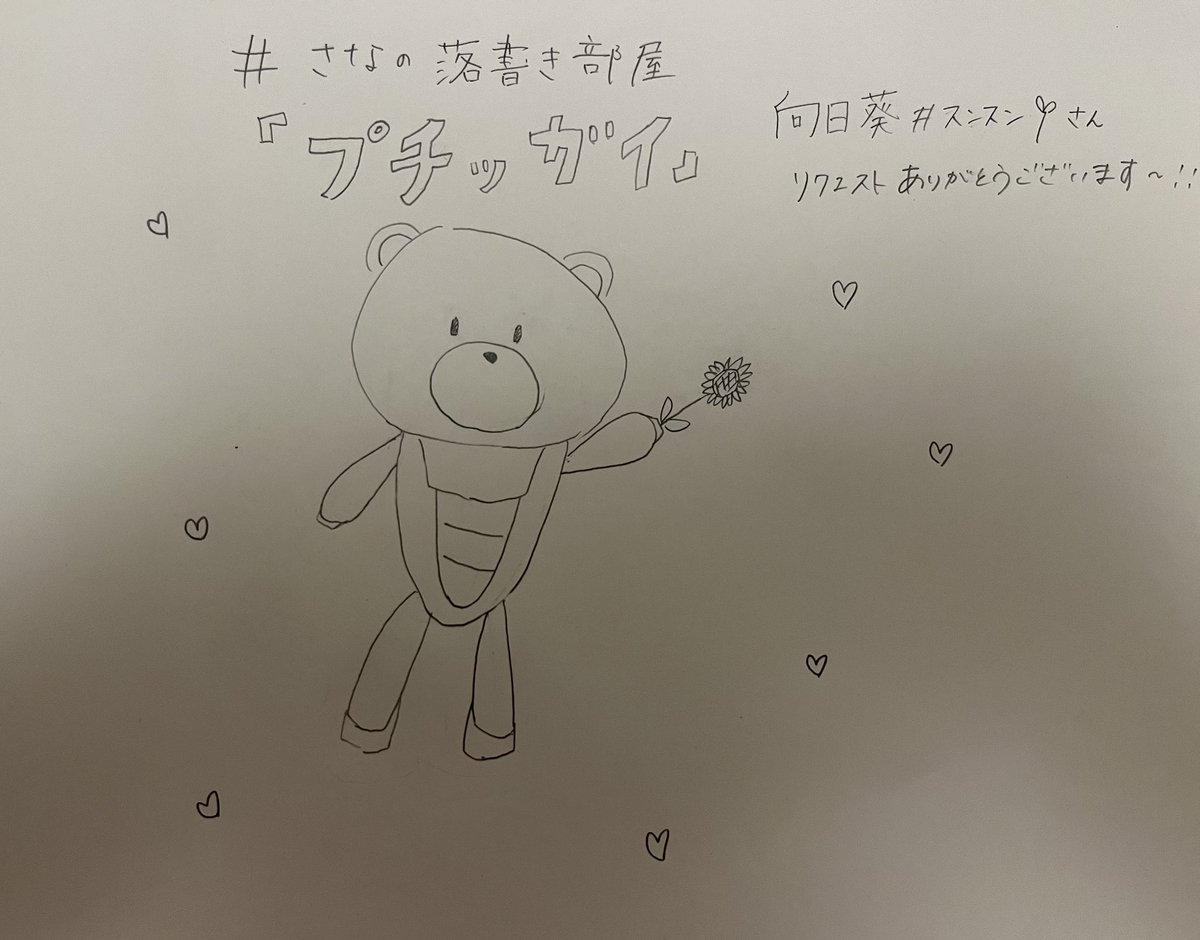 # さなの落書き部屋
『プチッガイ』
向日葵#スンスン♡さん
リクエストありがとうございます~!!